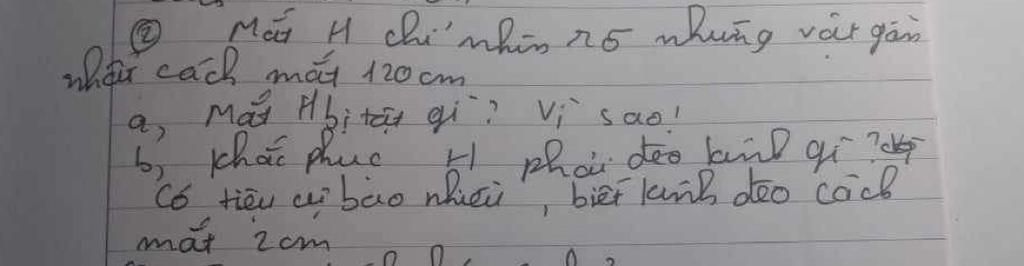 ② Mắt H chỉ nhìn rõ những vật gần
nhất cách mắt 120cm
a, Mắt H bị tật gì? Vì sao!
b, Khắc phục H phải đeo kính gì?
Có tiêu cự bao nhiêu, biết kính đeo cách
mắt 2cm